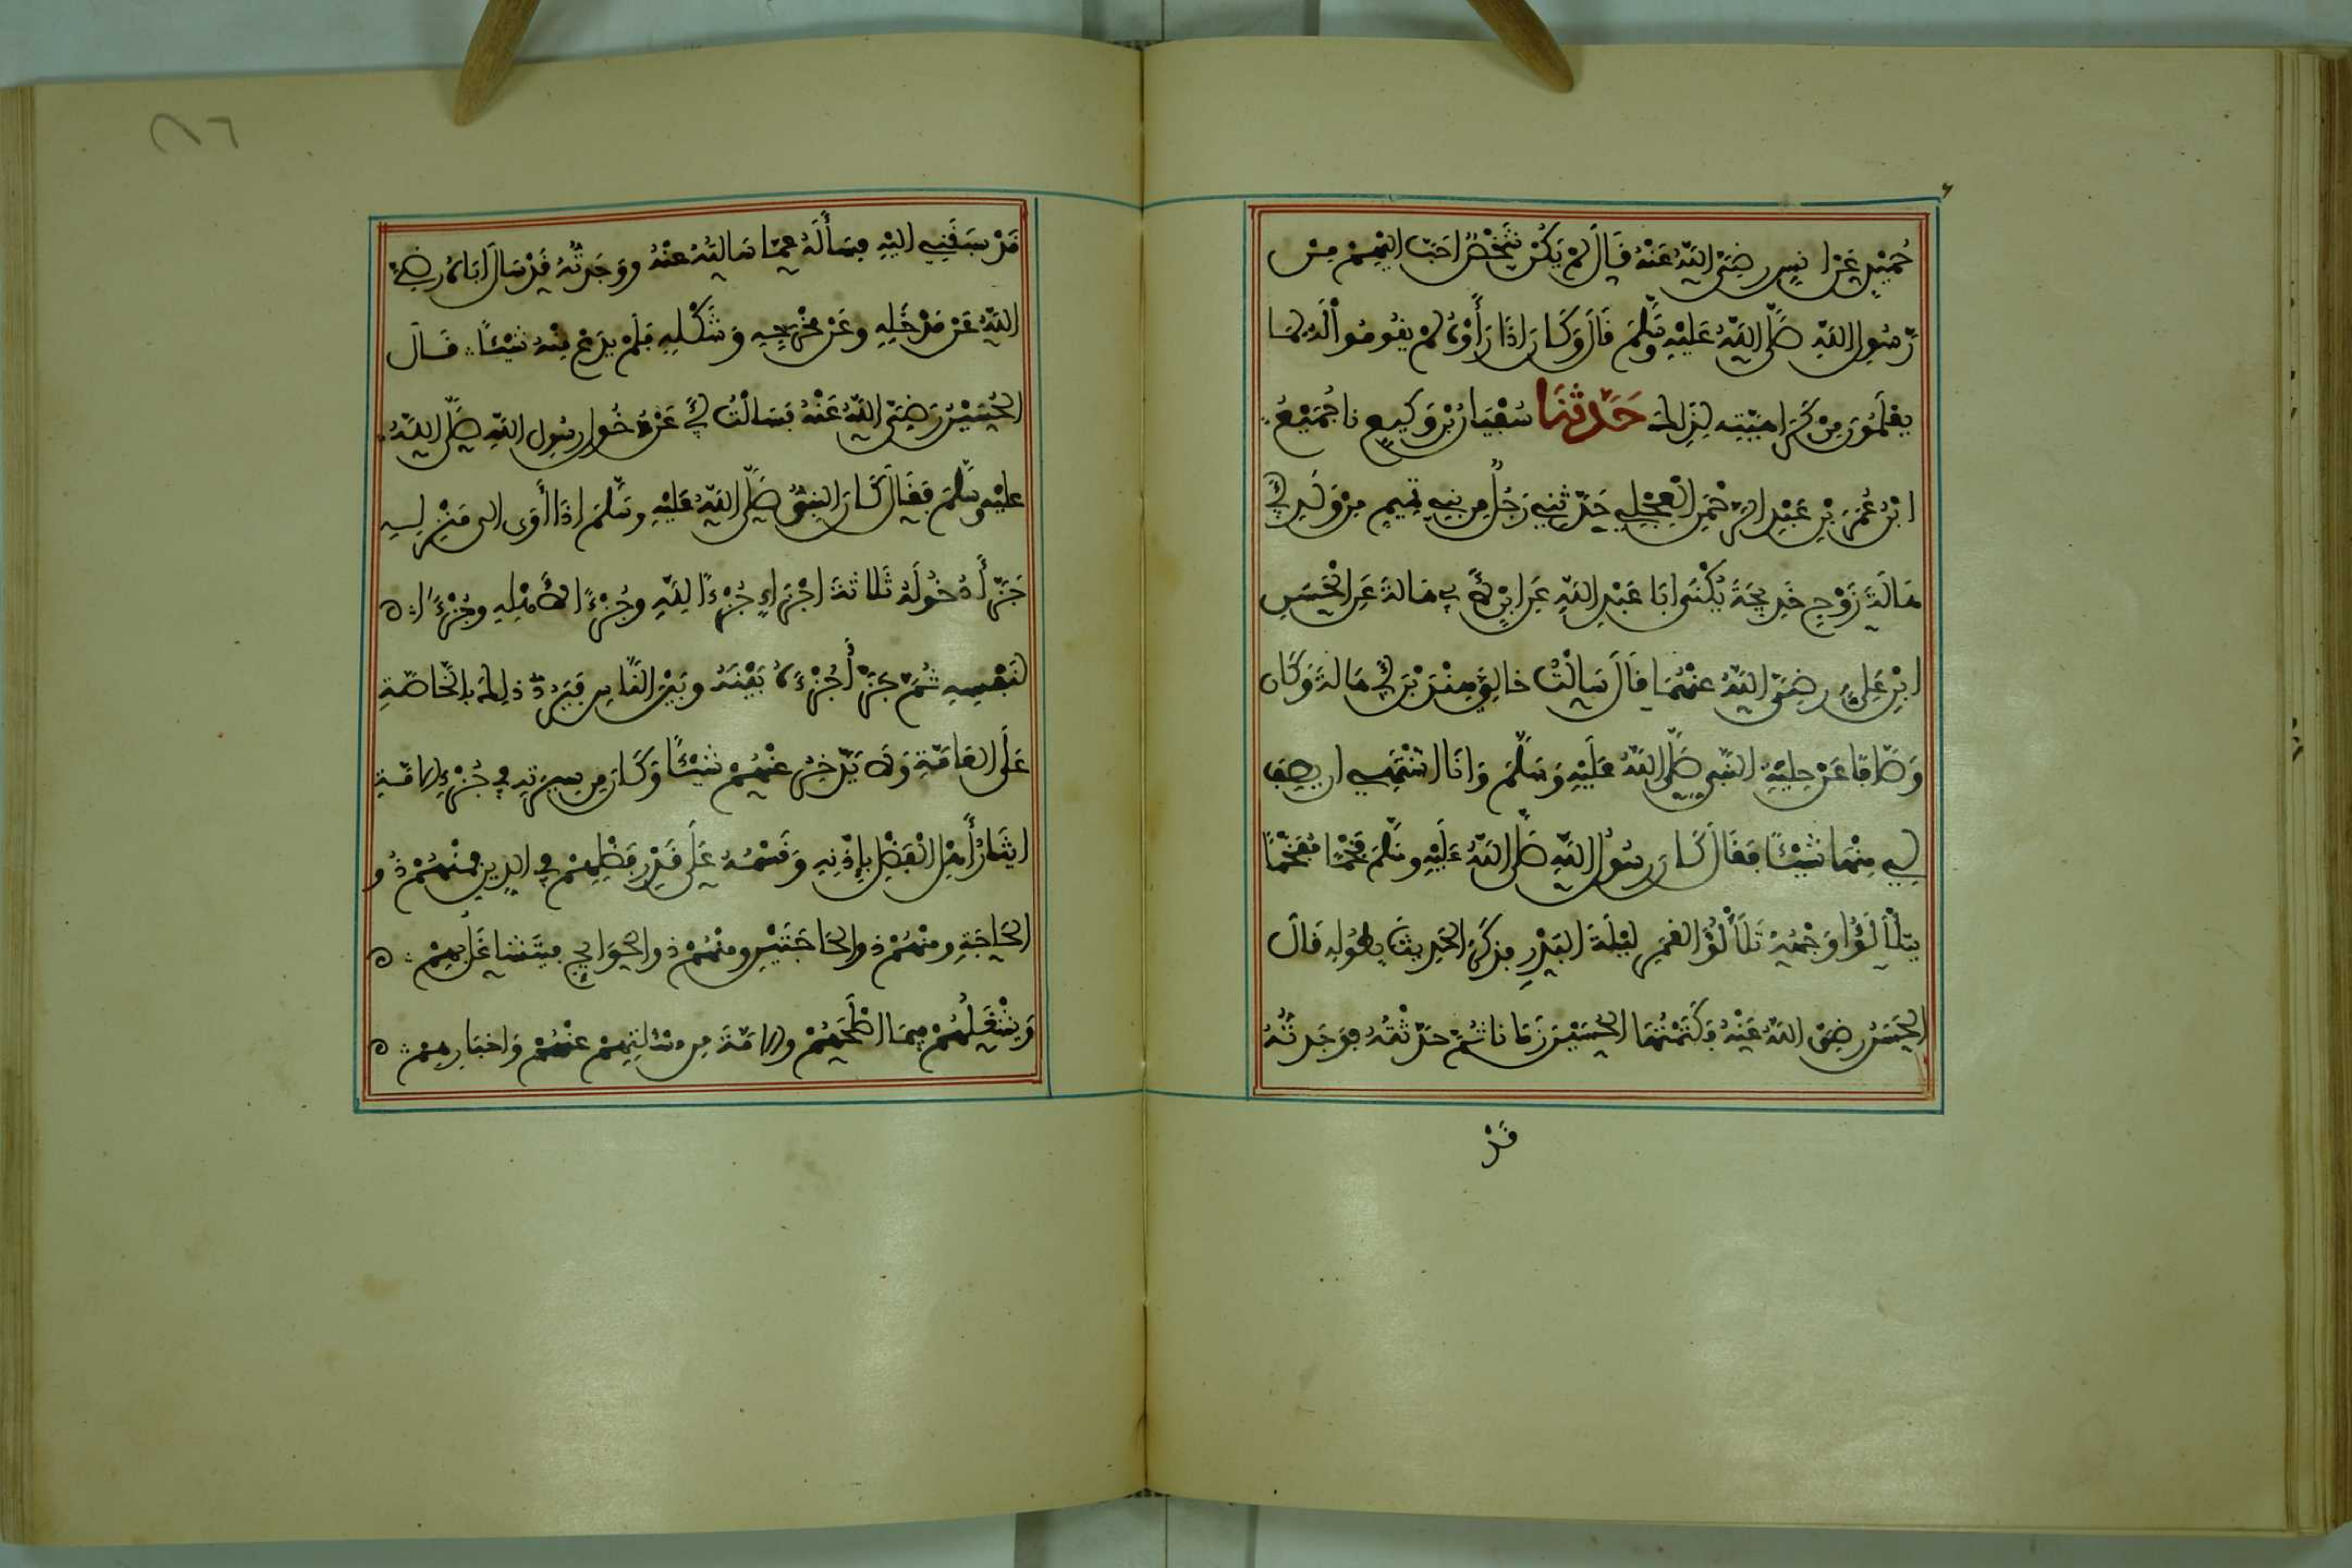 حُمَيْدٍ عَنْ انَسٍ رضِيَ اللَّهُ عَنْهُ قَالَ لَمْ يَكُنْ شَخْصٌ احَبَّ اليْهِمْ مِنْ
رَّسُولِ اللَّهِ صَلَّى اللَّهُ عَلَيْهِ وَسَلَّمَ قَالَ وَكَانَ اذَا رَأَوْهُ لَمْ يقُومُوا لَهُ لِمَا
يعْلَمُونَ مِنْ كَرَاهِيَّتِهِ لِذَلِكَ حَدَّثَنَا سُفْيَانُ بْنُ وَكِيعٍ نا جُمَيْعُ
ابْنُ عُمَرَ بْنِ عَبْدِ الرَّحْمَنِ الْعِجْلِي حَدَّثَنِي رَجُلٌ مِن بَنِي تَمِيمٍ مِنْ وَلَدِ أَبِي
هَالَةَ زَوْجِ خَدِيجَةَ يُكْنَى ابَا عَبْدِ اللَّهِ عَنِ ابْنٍ لأَبِي هَالَةَ عَنِ الْحَسَنِ
ابْنِ عَلِيٍّ رضِيَ اللَّهُ عنْهُمَا قَالَ سَالْتُ خالِي هِنْدَ بْنَ أَبِي هَالَةَ وَكَان
وَصَّافًا عَنْ حِلْيَةِ النَّبِيِّ صَلَّى اللَّهُ عَلَيْهِ وَسَلَّمَ وَانَا اشْتَهِي ان يصِفَ
لِي مِنْهَا شَيْئًا فَقَالَ كَانَ رسُولُ اللَّهِ صَلَّى اللَّهُ عَلَيْهِ وسَلَّمَ فَخْمًا مُفَخَّمًا
يتَلَأْلَؤُ وَجْهُهُ تَلَأْلُؤَ القَمَرِ لَيْلَةَ البَدْرِ فذَكَرَ الحَدِيثَ بِطُولِهِ قَالَ
الحَسَنُ رضِيَ اللَّهُ عَنْهُ فَكَتَمْتُهَا الحُسَيْنَ زَمَانًا ثُمَّ حَدَّثْتُهُ فوَجَدتُّهُ
قَدْ
قَدْ سبَقَنِي اليْهِ فسَأَلَهُ عمَّا سَالتُهُ عنْهُ ووَجَدتُّهُ قَدْ سَالَ ابَاهُ رضِيَ
اللَّهُ عَنْ مَدْخَلِهِ وعَنْ مَخْرَجِهِ وَشَكْلِهِ فَلَمْ يدَعْ مِنْهُ شَيْئًا قَالَ
الحُسَيْنُ رَضِيَ اللَّهُ عَنْهُ فسَالْتُ أَبِي عَنْ دُخُولِ رسُولِ اللَّهِ صَلَّى اللَّهُ
علَيْهِ وسَلَّمَ فَقَالَ كَانَ النبِيُّ صَلَّى اللَّهُ عَلَيْهِ وسَلَّمَ اذَا أَوَى الى مَنْزِلِهِ
جَزَّأَ دُخُولَهُ ثَلاثَةَ اجْزَاءٍ جُزْءًا لِلَّهِ وجُزْءًا لأَهْلِهِ وجُزْءًا
لنَفْسِهِ ثُمَّ جَزَّأَ جُزْءَهُ بَيْنَهُ وبَيْنَ النَّاسِ فيَرُدُّ ذلِكَ بالخَاصَّةِ
عَلَى العَامَّةِ وَلَا يَدَّخِرُ عنْهُمْ شَيْئًا وَكَانَ مِن سِيرَتِهِ فِي جُزْءِ الامَّةِ
ايثَارُ أَهْلِ الْفَضْلِ بِإِذْنِهِ وَقَسْمُهُ عَلَى قَدْرِ فَضْلِهِمْ فِي الدِينِ فمنْهُمْ ذُو
الحَاجَةِ ومنْهُمْ ذو الحَاجَتَيْنِ ومنْهُمْ ذو الحَوَائِجِ فيَتَشَاغَلُ بهِمْ
وَيَشْغَلُهُمْ فِيمَا اصْلَحَهُمْ والامَّةَ مِن مسْالَتِهِمْ عنْهُمْ وَاخبَارِهِمْ